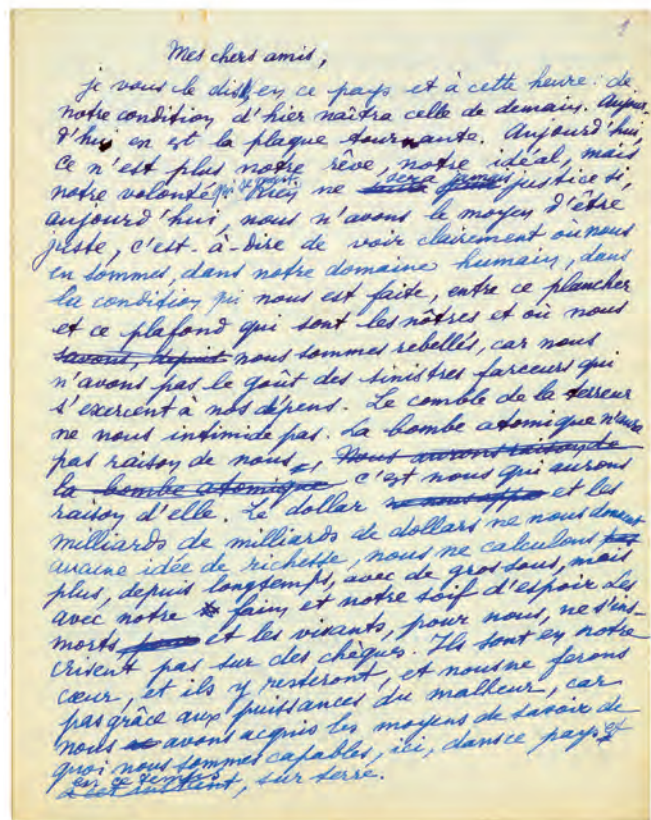 1
Mes chers amis,
je vous le dis, en ce pays et à cette heure : de
notre condition d'hier naîtra celle de demain. Aujour-
d'hui en est la plaque tournante. Aujourd'hui,
ce n'est plus notre rêve, notre idéal, mais
notre volonté qui Rien ne sera jamais justice si,
aujourd'hui, nous n'avons le moyen d'être
juste, c'est-à-dire de voir clairement où nous
en sommes, dans notre domaine humain, dans
la condition qui nous est faite, entre ce plancher
et ce plafond qui sont les nôtres et où nous
savons, depuis nous sommes rebellés, car nous
n'avons pas le goût des sinistres farceurs qui
s'exercent à nos dépens. Le comble de la terreur
ne nous intimide pas. La bombe atomique n'aura
pas raison de nous, Nous aurons raison de
la bombe atomique c'est nous qui aurons
raison d'elle. Le dollar et les
milliards de milliards de dollars ne nous donnent
aucune idée de richesse, nous ne calculons pas
plus, depuis longtemps, avec de gros sous, mais
avec notre faim et notre soif d'espoir. Les
morts et les vivants, pour nous, ne s'ins-
crisent pas sur des chèques. Ils sont en notre
cœur, et ils y resteront, et nous ne ferons
pas grâce aux puissances du malheur, car
nous avons acquis les moyens de savoir de
quoi nous sommes capables, ici, dans ce pays et
en ce temps
à cet instant, sur terre.